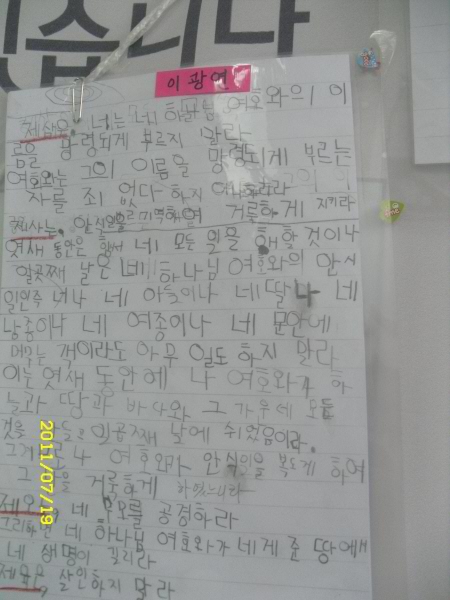 있습니다
이광연
제삼은, 너는 네 하나님 여호와의 이
름을 망령되게 부르지 말라
여호와는 그의 이름을 망령되게 부르는
자를 죄 없다 하지 아니하리라
제사는, 안식일을 기억하여 거룩하게 지키라
엿새 동안은 힘써 네 모든 일을 행할 것이나
일곱째 날은 네 하나님 여호와의 안식
일인즉 너나 네 아들이나 네 딸나 네
남종이나 네 여종이나 네 문안에
머무는 객이라도 아무 일도 하지 말라
이는 엿새 동안에 나 여호와가 하
늘과 땅과 바다와 그 가운데 모든
것을 만들 일곱째 날에 쉬었음이라.
그러므로 나 여호와가 안식일을 복되게 하여
그 을 거룩하게 하였느니라
제오은, 네 부모를 공경하라
그리하면 네 하나님 여호와가 네게 준 땅에서
네 생명이 길리라
제육은, 살인하지 말라
2011/07/19